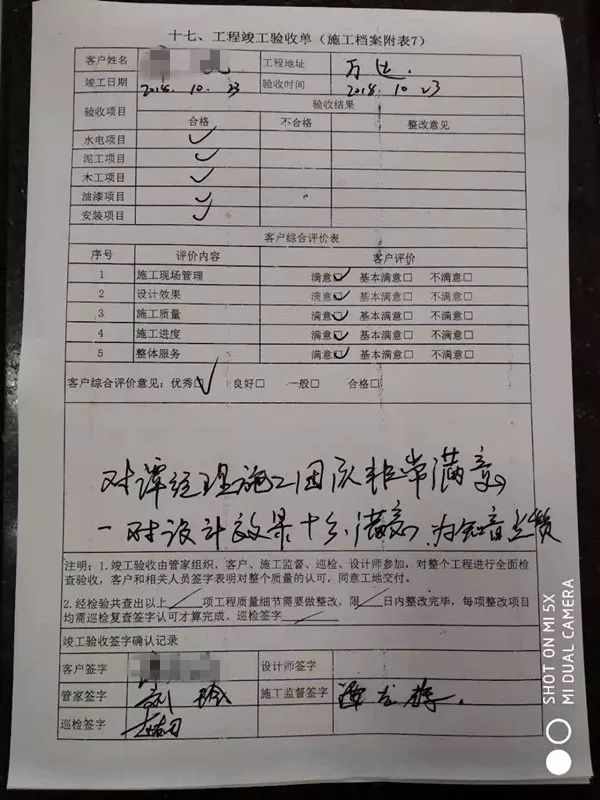 十七、工程竣工验收单（施工档案附表7）
客户姓名 工程地址 万达
竣工日期 2018.10.23 验收时间 2018.10 23
验收项目 验收结果
合格 不合格 整改意见
水电项目 ✓
泥工项目 ✓
木工项目 ✓
油漆项目 ✓
安装项目 ✓
客户综合评价表
序号 评价内容 客户评价
1 施工现场管理 满意☑ 基本满意□ 不满意□
2 设计效果 满意☑ 基本满意□ 不满意□
3 施工质量 满意☑ 基本满意□ 不满意□
4 施工进度 满意☑ 基本满意□ 不满意□
5 整体服务 满意☑ 基本满意□ 不满意□
客户综合评价意见：优秀☑ 良好□ 一般□ 合格□
对谭经理施工团队非常满意
对设计效果十分满意，为知音点赞
注明：1.竣工验收由管家组织，客户、施工监督、巡检、设计师参加，对整个工程进行全面检
查验收，客户和相关人员签字表明对整个质量的认可，同意工地交付。
2.经检验共查出以上 / 项工程质量细节需要做整改，限 / 日内整改完毕，每项整改项目
均需巡检复查签字认可才算完成，巡检签字 /
竣工验收签字确认记录
客户签字 设计师签字
管家签字 施工监督签字
巡检签字
SHOT ON MI 5X
MI DUAL CAMERA